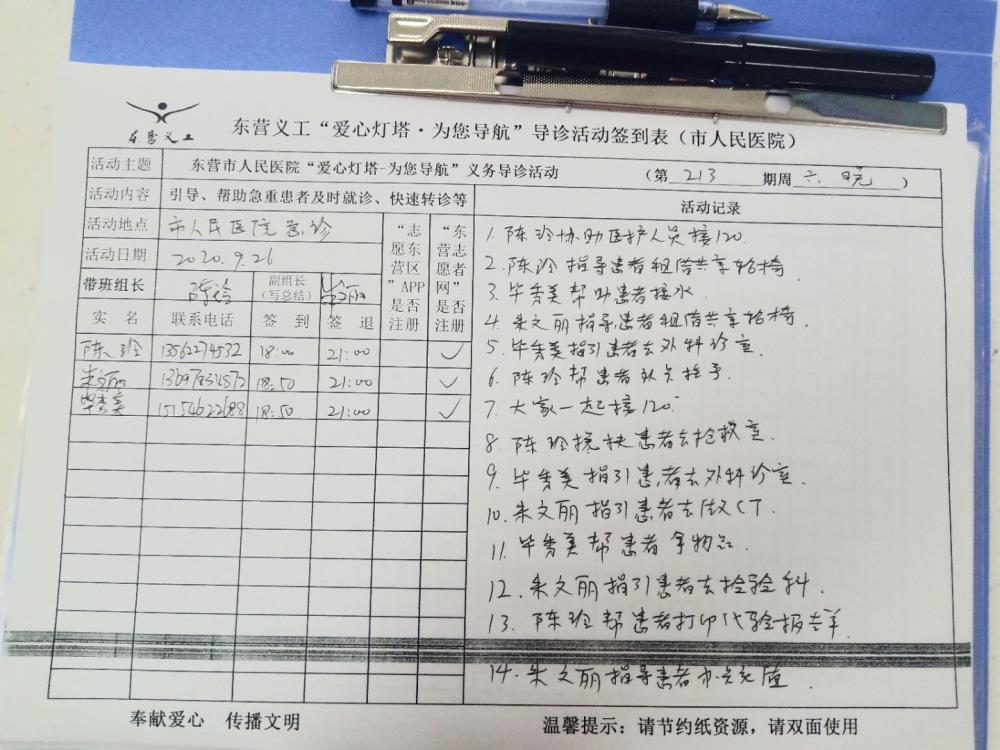 东营义工
东营义工“爱心灯塔·为您导航”导诊活动签到表（市人民医院）
活动主题 东营市人民医院“爱心灯塔-为您导航”义务导诊活动 （第 213 期周 六 晚 ）
活动内容 引导、帮助急重患者及时就诊、快速转诊等
活动地点 市人民医院急诊
活动日期 2020.9.26
带班组长 陈玲 副组长（写总结） 朱文丽
“志愿东营区”APP是否注册
“东营志愿者网”是否注册
实名 联系电话 签到 签退
陈玲 13562274532 18:00 21:00 ✓
朱文丽 18:50 21:00 ✓
毕秀美 15154622688 18:50 21:00 ✓
活动记录
1. 陈玲协助医护人员接120.
2. 陈玲指导患者租借共享轮椅
3. 毕秀美帮助患者接水.
4. 朱文丽指导患者租借共享轮椅.
5. 毕秀美指引患者去外科诊室.
6. 陈玲帮患者
7. 大家一起接120.
8. 陈玲搀扶患者去抢救室.
9. 毕秀美指引患者去外科诊室.
10. 朱文丽指引患者去做CT.
11. 毕秀美帮患者拿物品.
12. 朱文丽指引患者去检验科.
13. 陈玲帮患者打印化验报告单.
14. 朱文丽指导患者办卡充值.
奉献爱心 传播文明
温馨提示：请节约纸资源，请双面使用